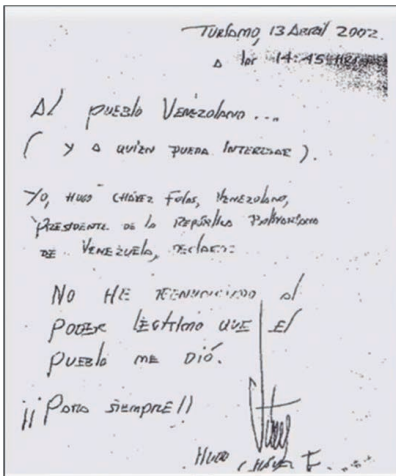 Turiamo, 13 Abril 2002.
a las 14:45 HRS
Al pueblo Venezolano...
( y a quien pueda interesar ).
Yo, Hugo Chávez Frías, Venezolano,
Presidente de la República Bolivariana
de Venezuela, declaro:
No he renunciado al
poder legítimo que el
pueblo me dió.
¡¡ Para siempre!!
Hugo Chávez F.